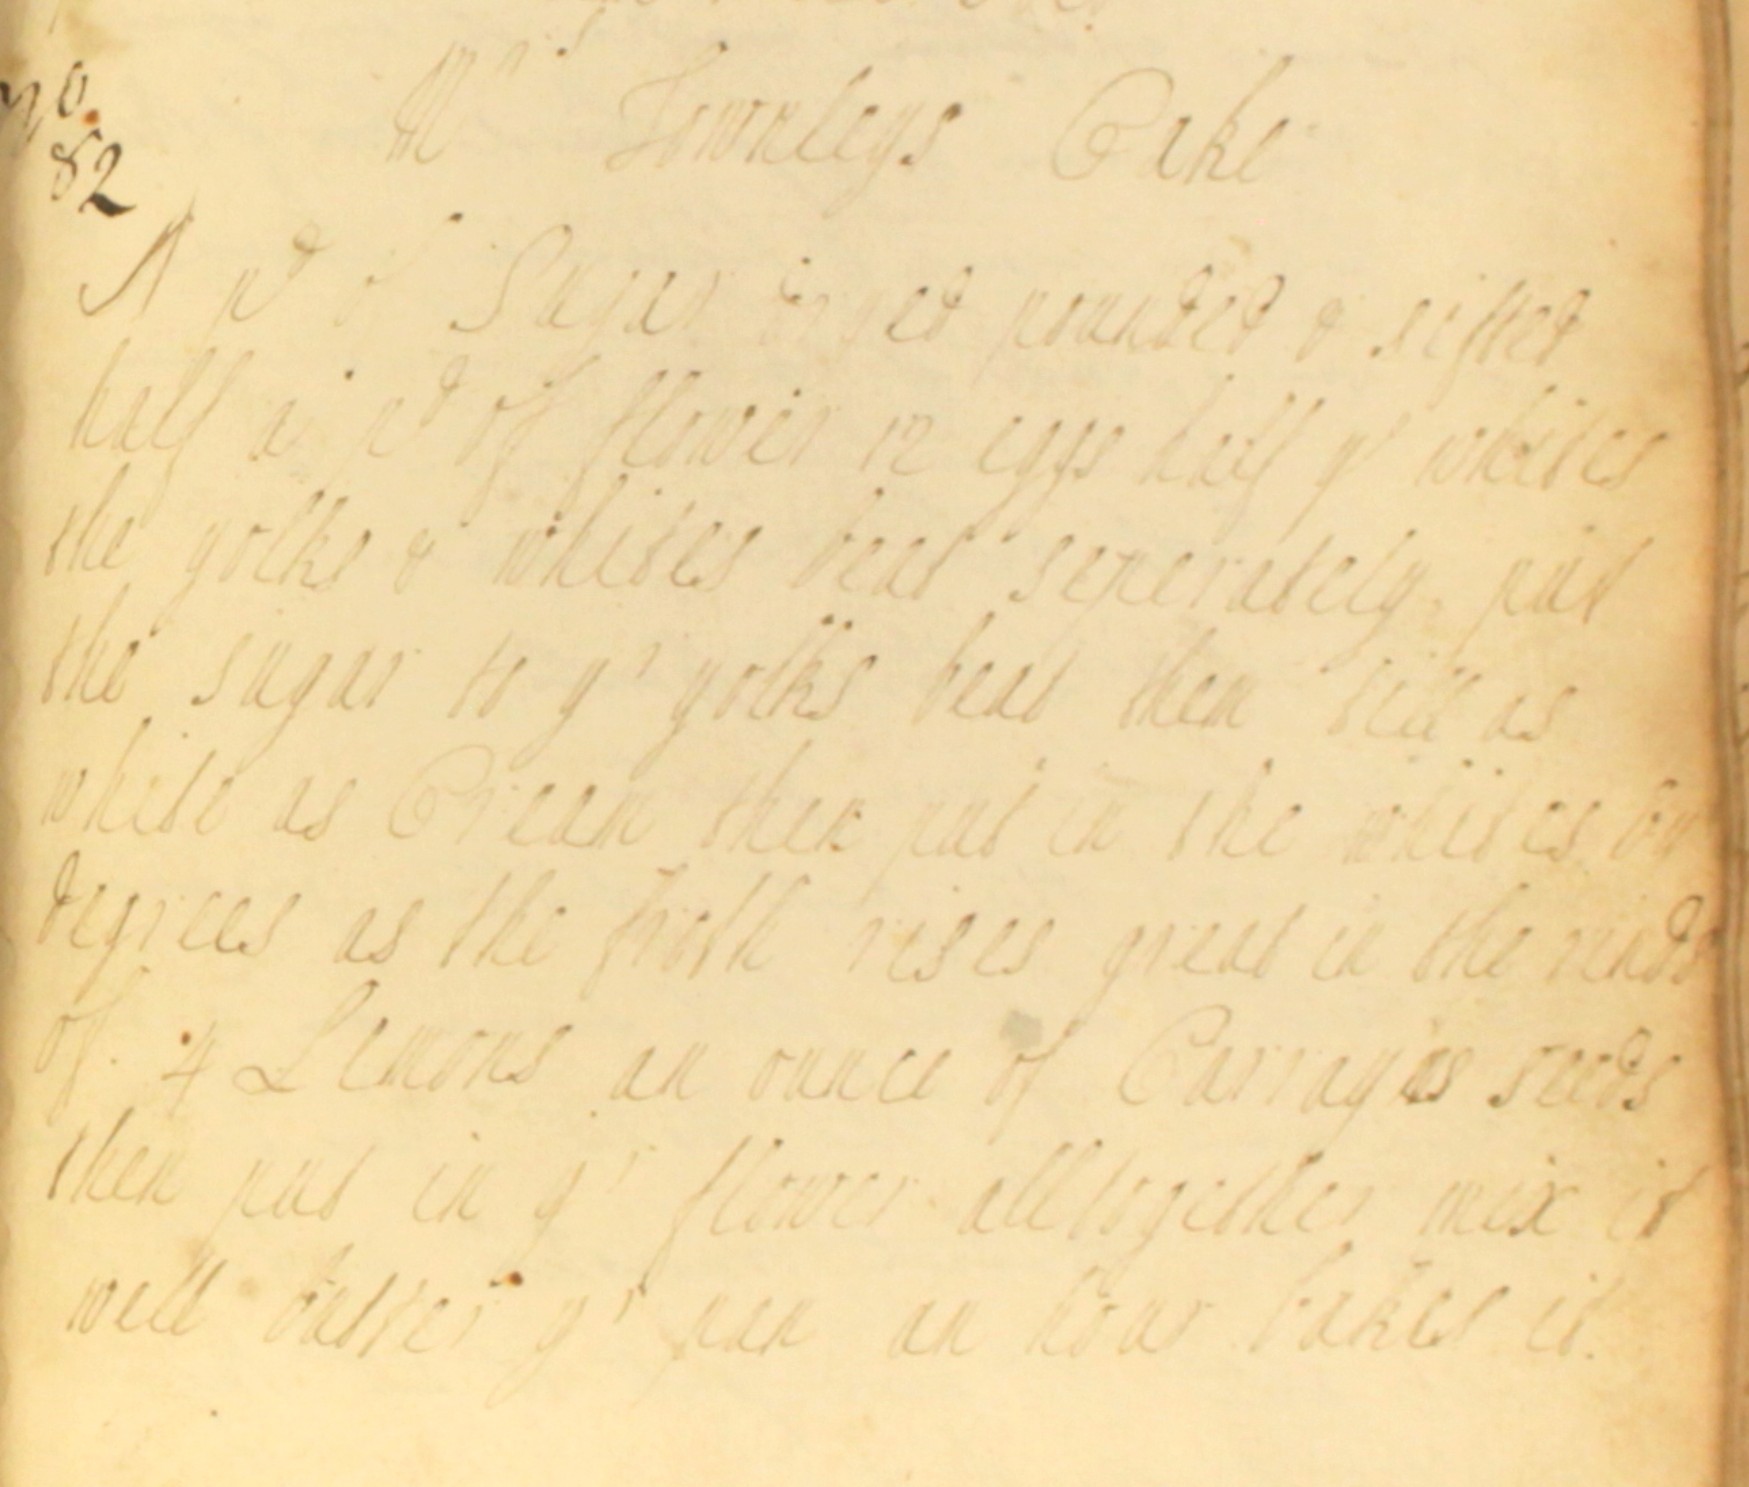 No.
82
Mrs Townleys Cake
A pd of Sugar dryed pounded & sifted
half a pd of flower 12 eggs half ye whites
the yolks & whites beat seperately put
the sugar to yr yolks beat them till as
white as Cream then put in the whites by
degrees as the froth rises great in the rinds
of 4 Lemons an ounce of Carray seeds
then put in yr flower alltogether mix it
well butter yr pan an hour bakes it.